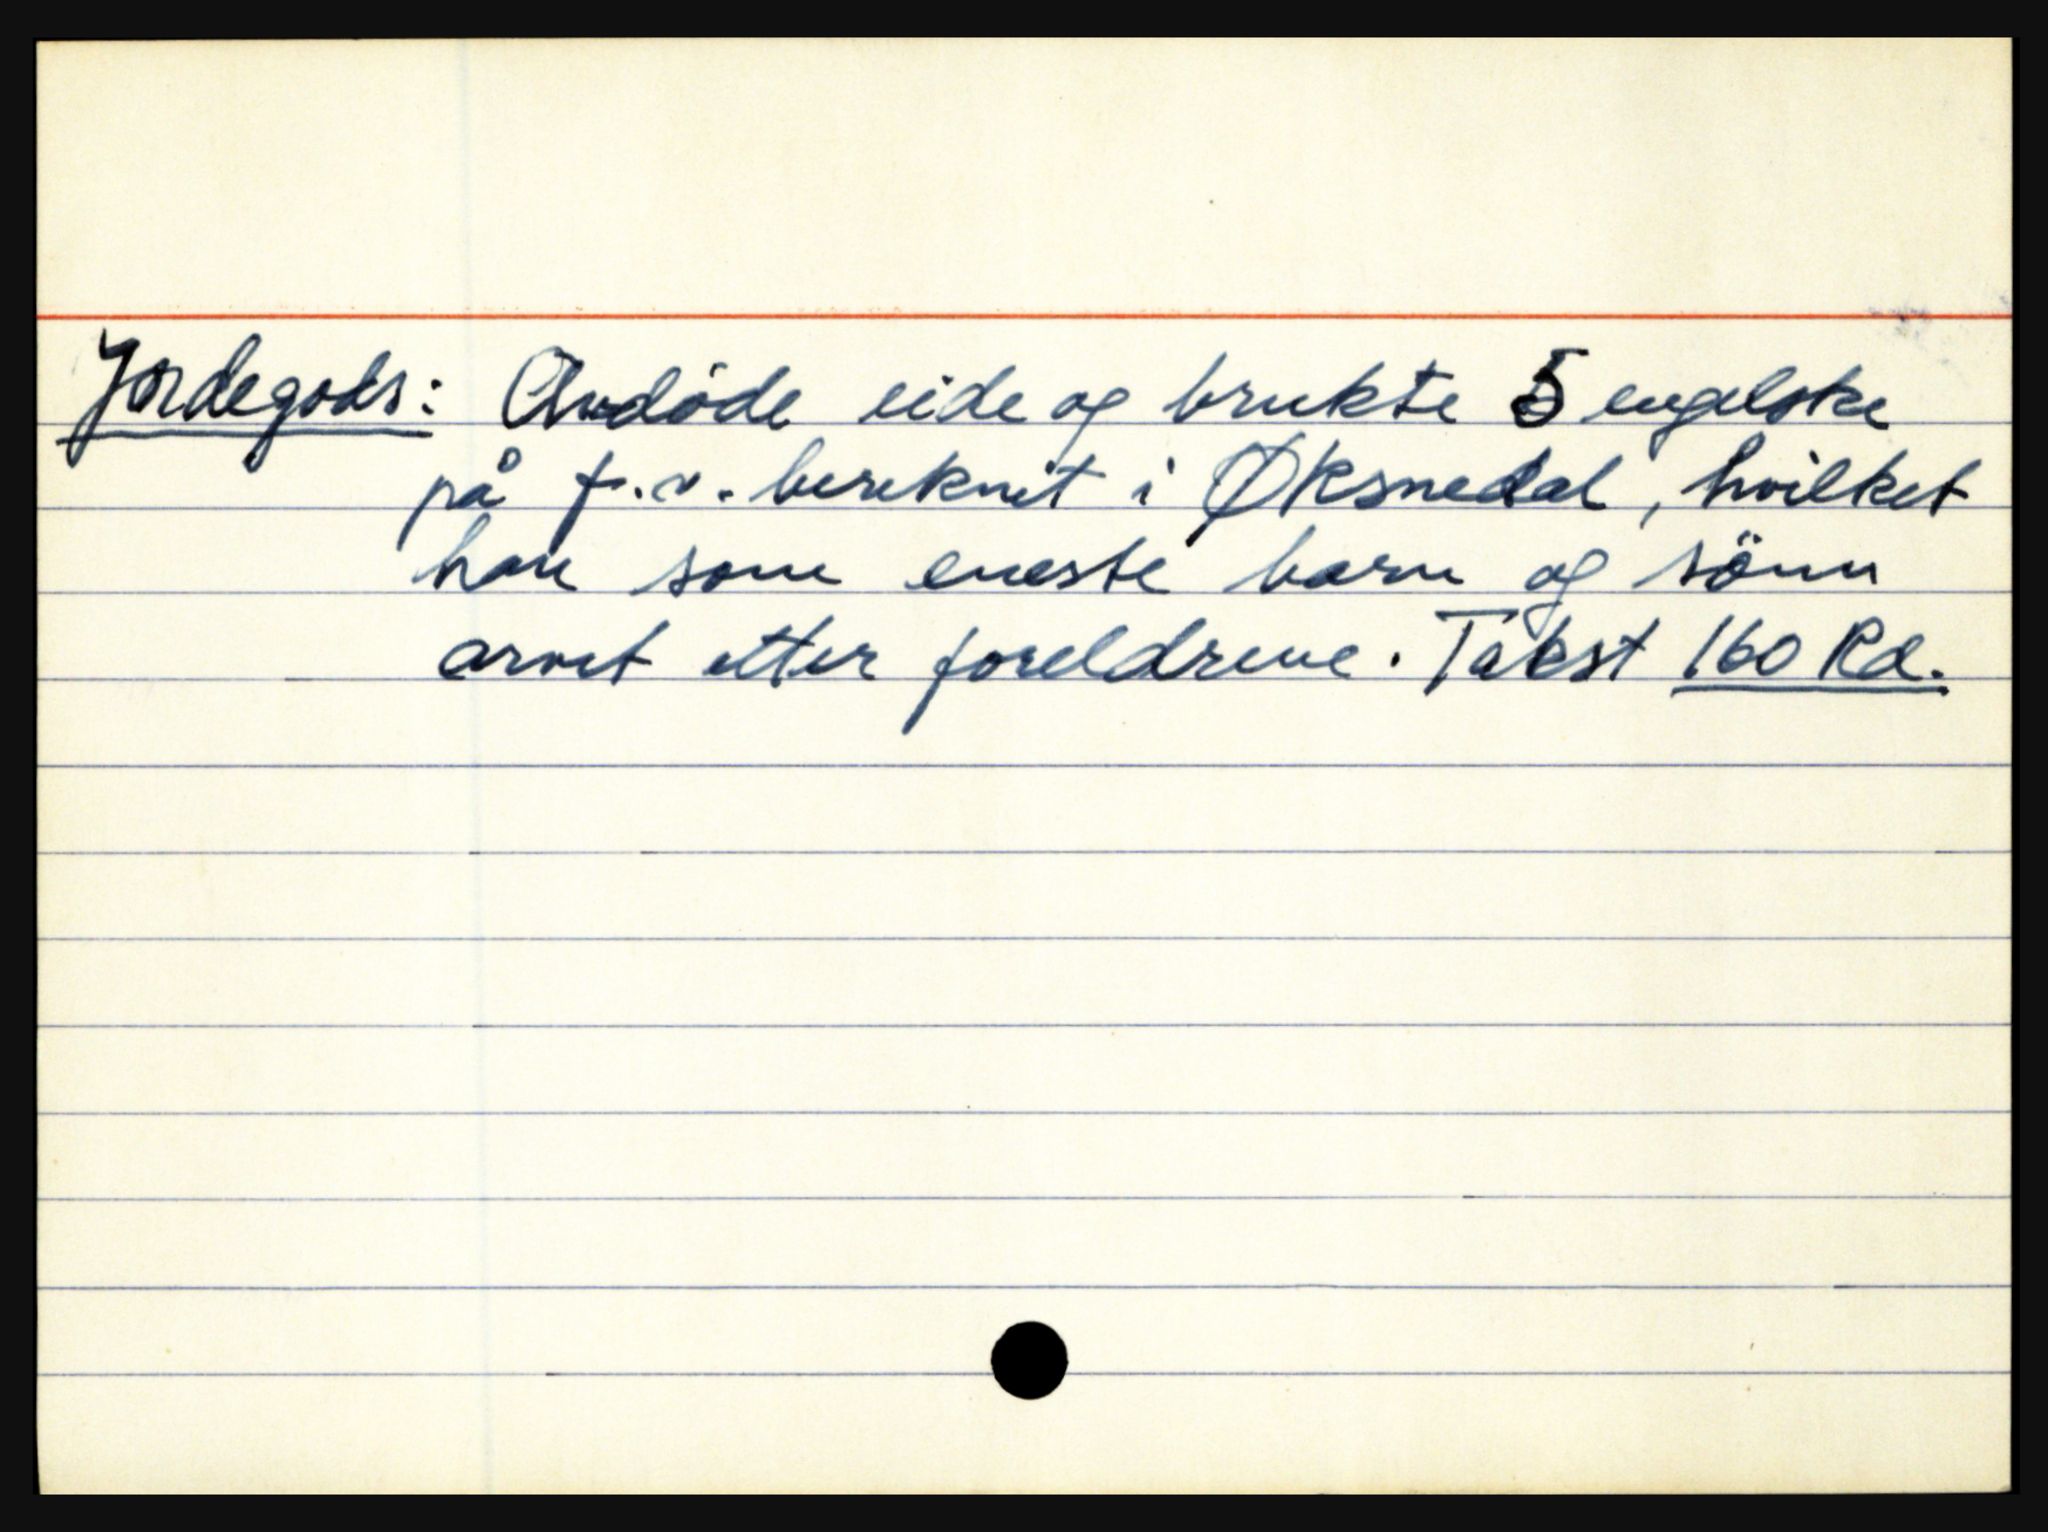 Jordegods: Avdöde eide og brukte 5 engelske
på f.v. bereknet i Øksnedal, hvilket
han som eneste barn og sönn
arvet etter foreldrene. Takst 160 Rd.